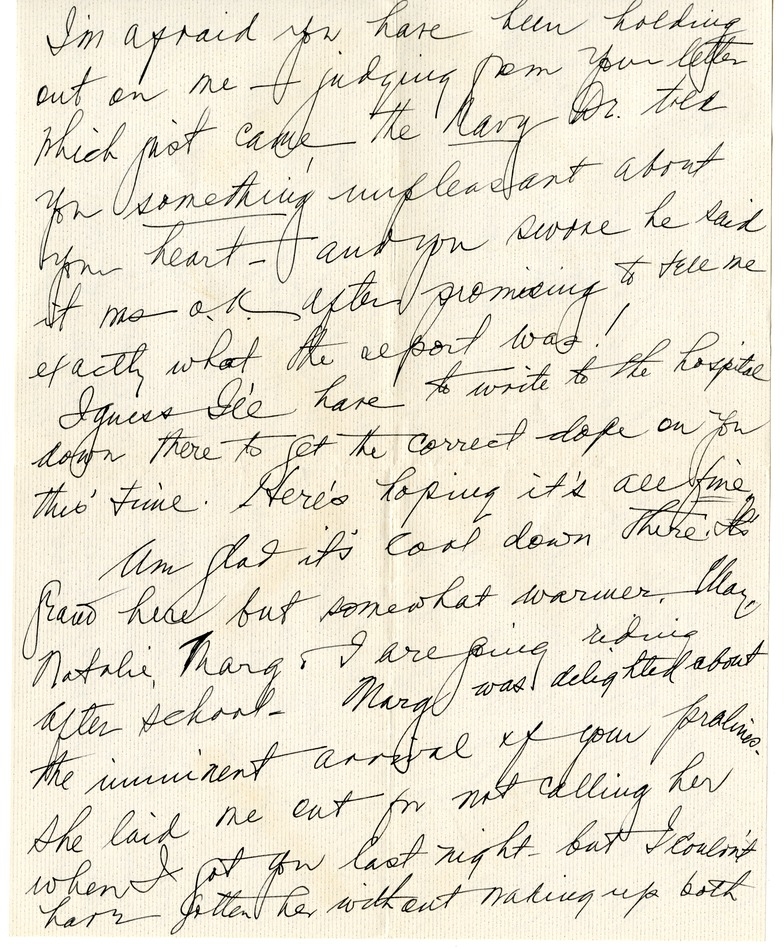 I'm afraid you have been holding
out on me - judging from your letter
which just came, the Navy Dr. told
you something unpleasant about
your heart - and you swore he said
it was o.k. after promising to tell me
exactly what the report was!
I guess I'll have to write to the hospital
down there to get the correct dope on you
this time. Here's hoping it's all fine.
Am glad it's cool down there. It's
grand here but somewhat warmer. May,
Natalie, Marg & I are going riding
after school - Marg was delighted about
the imminent arrival of your pralines.
She laid me out for not calling her
when I got you last night - but I couldn't
have gotten her without waking up both